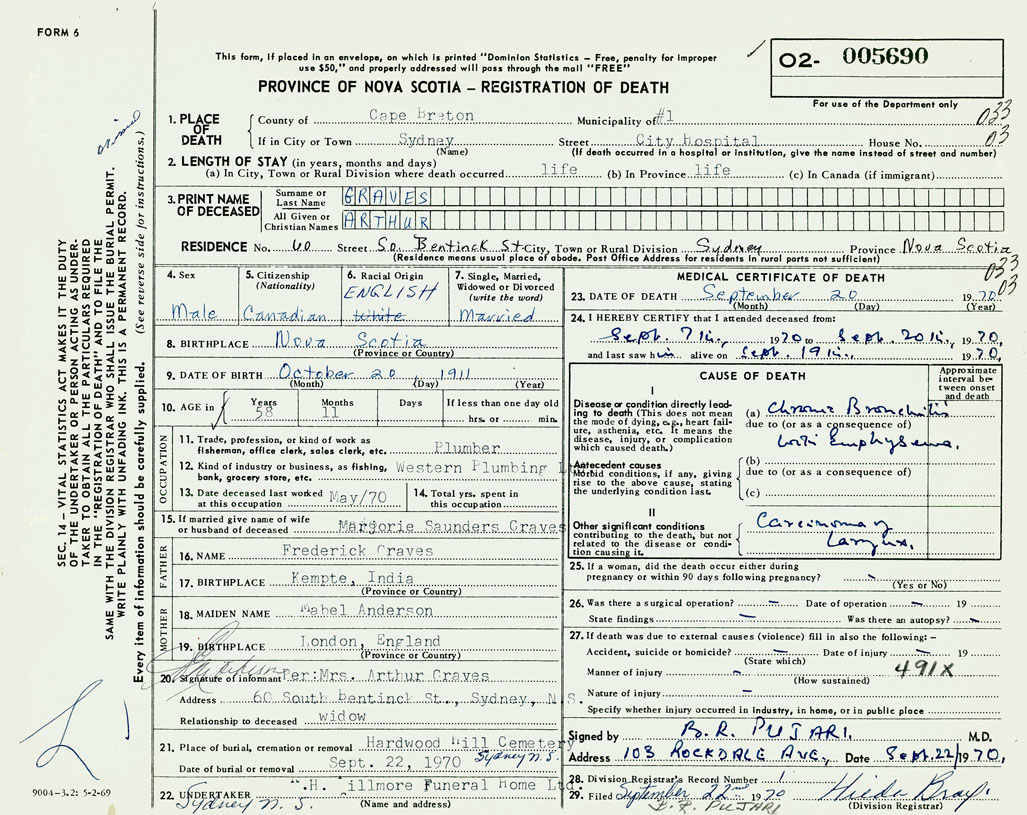 FORM 6
This form, if placed in an envelope, on which is printed "Dominion Statistics – Free, penalty for improper
use $50," and properly addressed will pass through the mail "FREE"
PROVINCE OF NOVA SCOTIA – REGISTRATION OF DEATH
02- 005690
For use of the Department only
033
03
1. PLACE OF DEATH
County of Cape Breton Municipality of #1
If in City or Town Sydney Street City hospital House No.
(Name) (If death occurred in a hospital or institution, give the name instead of street and number)
2. LENGTH OF STAY (in years, months and days)
(a) In City, Town or Rural Division where death occurred life (b) In Province life (c) In Canada (if immigrant)
3. PRINT NAME OF DECEASED
Surname or Last Name GRAVES
All Given or Christian Names ARTHUR
RESIDENCE No. 60 Street So. Bentinck St City, Town or Rural Division Sydney Province Nova Scotia
(Residence means usual place of abode. Post Office Address for residents in rural parts not sufficient)
033
03
4. Sex
Male
5. Citizenship
(Nationality)
Canadian
6. Racial Origin
ENGLISH
White
7. Single, Married,
Widowed or Divorced
(write the word)
Married
8. BIRTHPLACE Nova Scotia
(Province or Country)
9. DATE OF BIRTH October 20, 1911
(Month) (Day) (Year)
10. AGE in Years 58 Months 11 Days If less than one day old
hrs. or min.
OCCUPATION
11. Trade, profession, or kind of work as
fisherman, office clerk, sales clerk, etc. Plumber
12. Kind of industry or business, as fishing,
bank, grocery store, etc. Western Plumbing
13. Date deceased last worked
at this occupation May/70
14. Total yrs. spent in
this occupation
15. If married give name of wife
or husband of deceased Marjorie Saunders Graves
FATHER
16. NAME Frederick Graves
17. BIRTHPLACE Kempte, India
(Province or Country)
MOTHER
18. MAIDEN NAME Mabel Anderson
19. BIRTHPLACE London, England
(Province or Country)
20. Signature of informant Per: Mrs. Arthur Graves
Address 60 South Bentinck St., Sydney, N.S.
Relationship to deceased widow
21. Place of burial, cremation or removal Hardwood Hill Cemetery
Sydney N.S.
Date of burial or removal Sept. 22, 1970
22. UNDERTAKER .H. illmore Funeral Home Ltd.
Sydney N.S. (Name and address)
MEDICAL CERTIFICATE OF DEATH
23. DATE OF DEATH September 20 1970
(Month) (Day) (Year)
24. I HEREBY CERTIFY that I attended deceased from:
Sept. 7th, 1970 to Sept. 20th, 1970,
and last saw him alive on Sept. 19th, 1970,
CAUSE OF DEATH
Approximate
interval be-
tween onset
and death
I
Disease or condition directly lead-
ing to death (This does not mean
the mode of dying, e.g., heart fail-
ure, asthenia, etc. It means the
disease, injury, or complication
which caused death.)
(a) Chronic Bronchitis
due to (or as a consequence of)
with Emphysema.
Antecedent causes
Morbid conditions, if any, giving
rise to the above cause, stating
the underlying condition last.
(b)
due to (or as a consequence of)
(c)
II
Other significant conditions
contributing to the death, but not
related to the disease or condi-
tion causing it.
Carcinoma of
Larynx.
25. If a woman, did the death occur either during
pregnancy or within 90 days following pregnancy? –
(Yes or No)
26. Was there a surgical operation? – Date of operation – 19
State findings – Was there an autopsy? –
27. If death was due to external causes (violence) fill in also the following: –
Accident, suicide or homicide? – Date of injury – 19
(State which)
Manner of injury – 491X
(How sustained)
Nature of injury –
Specify whether injury occurred in industry, in home, or in public place
Signed by B.R. PUJARI. M.D.
Address 103 ROCKDALE AVE, Date Sept. 22/1970,
28. Division Registrar's Record Number 1
29. Filed September 22nd 1970 Hilda Bray.
B. R. PUJARI (Division Registrar)
SEC. 14 – VITAL STATISTICS ACT MAKES IT THE DUTY
OF THE UNDERTAKER OR PERSON ACTING AS UNDER-
TAKER TO OBTAIN ALL THE PARTICULARS REQUIRED
IN THE "REGISTRATION OF DEATH" AND TO FILE THE
SAME WITH THE DIVISION REGISTRAR WHO SHALL ISSUE THE BURIAL PERMIT.
WRITE PLAINLY WITH UNFADING INK. THIS IS A PERMANENT RECORD.
Every item of information should be carefully supplied. (See reverse side for instructions.)
9004-3.2: 5-2-69